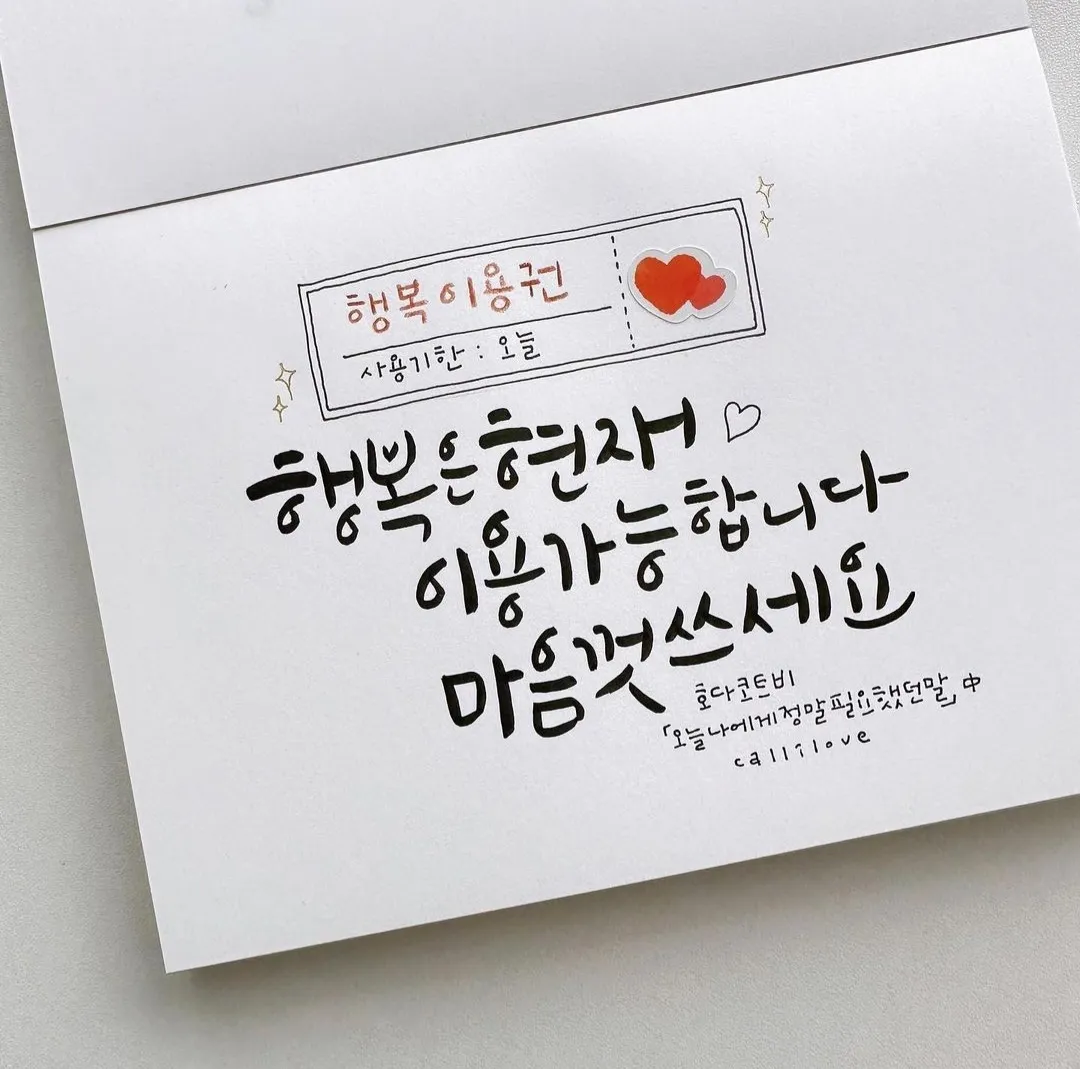 행복이용권
사용기한 : 오늘
행복은현재
이용가능합니다
마음껏쓰세요
호다코트비
「오늘나에게정말필요했던말」中
callilove